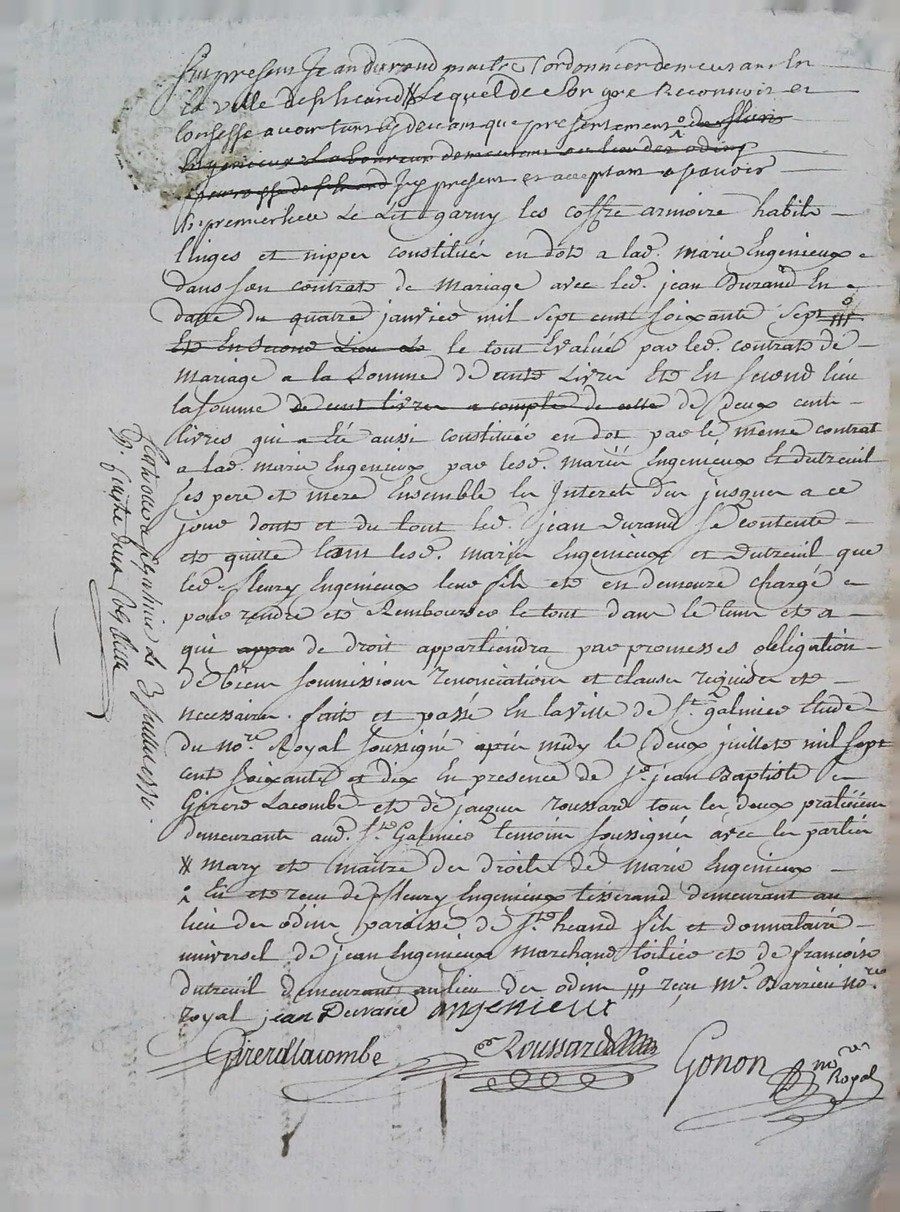 fut present Jean durand maitre Cordonnier demeurant En
la ville de st heand # lequel de son gré Reconnoit et
Confesse avoir tant cy devant que presentement ° de fleury
Engenieux Laboureur demeurant au lieu des odins
paroisse de st heand Icy present et acceptant a scavoir
En premier lieu Le Lit garny les coffre armoire habits
linges et nippes constitués en dot a lad. marie Engenieux
dans son contrat de Mariage avec led. jean Durand En
datte du quatre janvier mil sept cent soixante sept #°
Et En second Lieu Le le tout Evalué par led. contrat de
mariage a la Somme de cents Livres Et En second lieu
la somme de cent livres a compte de celle de deux cent
livres qui a été aussi constituée en dot par le même contrat
a lad. marie Engenieux par lesd. mariés Engenieux Et dutreuil
ses pere et mere Ensemble les Interets dus jusques a ce
jour dont et du tout led. jean durand se contente
et quitte tant lesd. mariés Engenieux et dutreuil que
led. fleury Engenieux leur fils et en demeure chargé
pour rendre et Rembourser le tout dans le tems et a
qui appa de droit appartiendra par promesses obligation
de biens soumissions renonciations et clauses requises et
necessaires. fait et passé En la ville de st. galmier Etude
du nore. Royal soussigné après midy le deux juillet mil sept
cent soixante et dix En presence de sr. jean Baptiste
Girerd Lacombe et de jacques roussard tous les deux praticiens
demeurants aud. st. Galmier temoins soussignés avec les parties
# mary et maitre des droits de Marie Engenieux
° Eu et reçu de fleury Engenieux tisserand demeurant au
lieu des odins paroisse de st. heand fils et donnataire
universel de jean Engenieux marchand toilier et de françoise
dutreuil demeurants au lieu des odins #° reçu me. Barrieu nore.
royal jean Durand angenieux
Girerdlacombe Roussard Gonon nore Royal